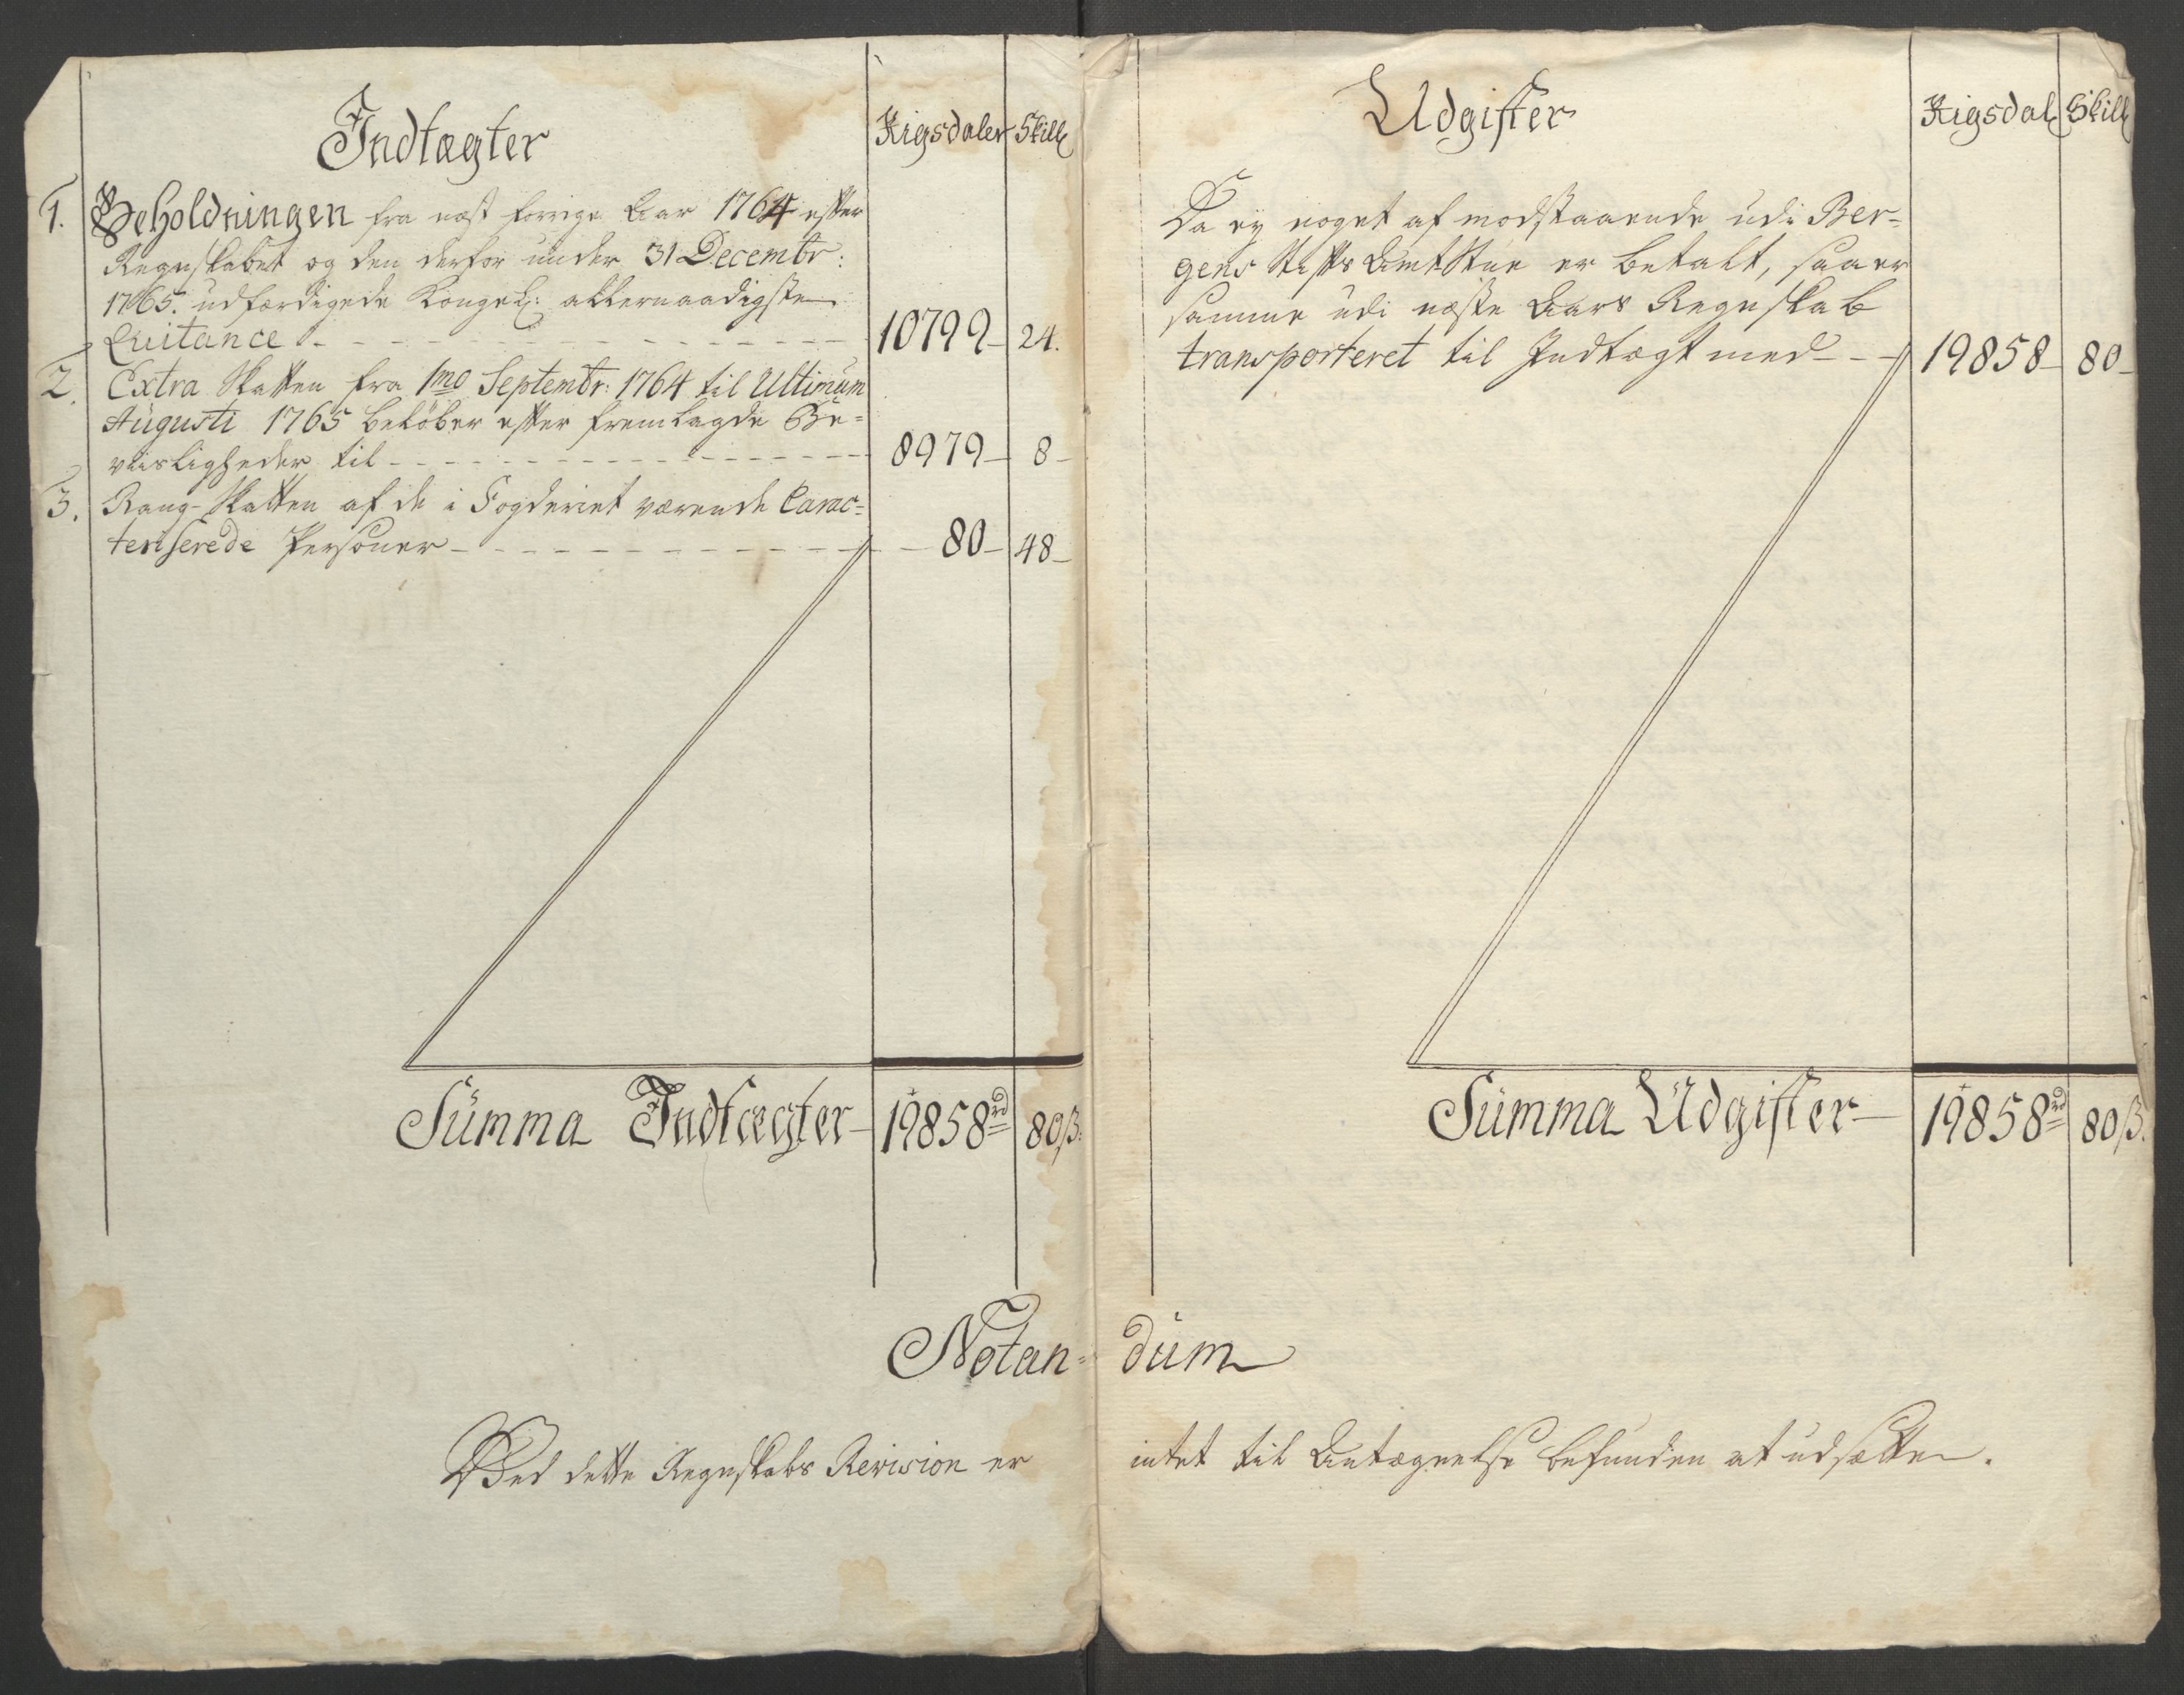 Indtægter Rigsdaler Skill
1. Beholdningen fra næst forrige Aar 1764 efter
Regnskabet og den derfor under 31 Decembr:
1765. udfærdigede Kongel: allernaadigste
Quitance - - - 10799 - 24.
2. Extra Skatten fra 1mo Septembr: 1764 til Ultimum
Augusti 1765 beløber efter fremlagde Be=
viisligheder til - - - 8979 - 8 -
3. Rang-Skatten af de i Fogderiet værende Carac=
teriserede Personer - - - 80 - 48 -
Summa Indtægter - 19858 rd 80 ß.
Udgifter Rigsdal Skill
Da ey noget af modstaaende udi Ber=
gens Stifts AmtStue er betalt, saa er
samme udi næste Aars Regnskab
transporteret til Indtægt med - - - 19858 - 80 -
Summa Udgifter - 19858 rd 80 ß.
Notan= dum
Ved dette Regnskabs Revision er intet til Antægnelse befunden at udsætte.